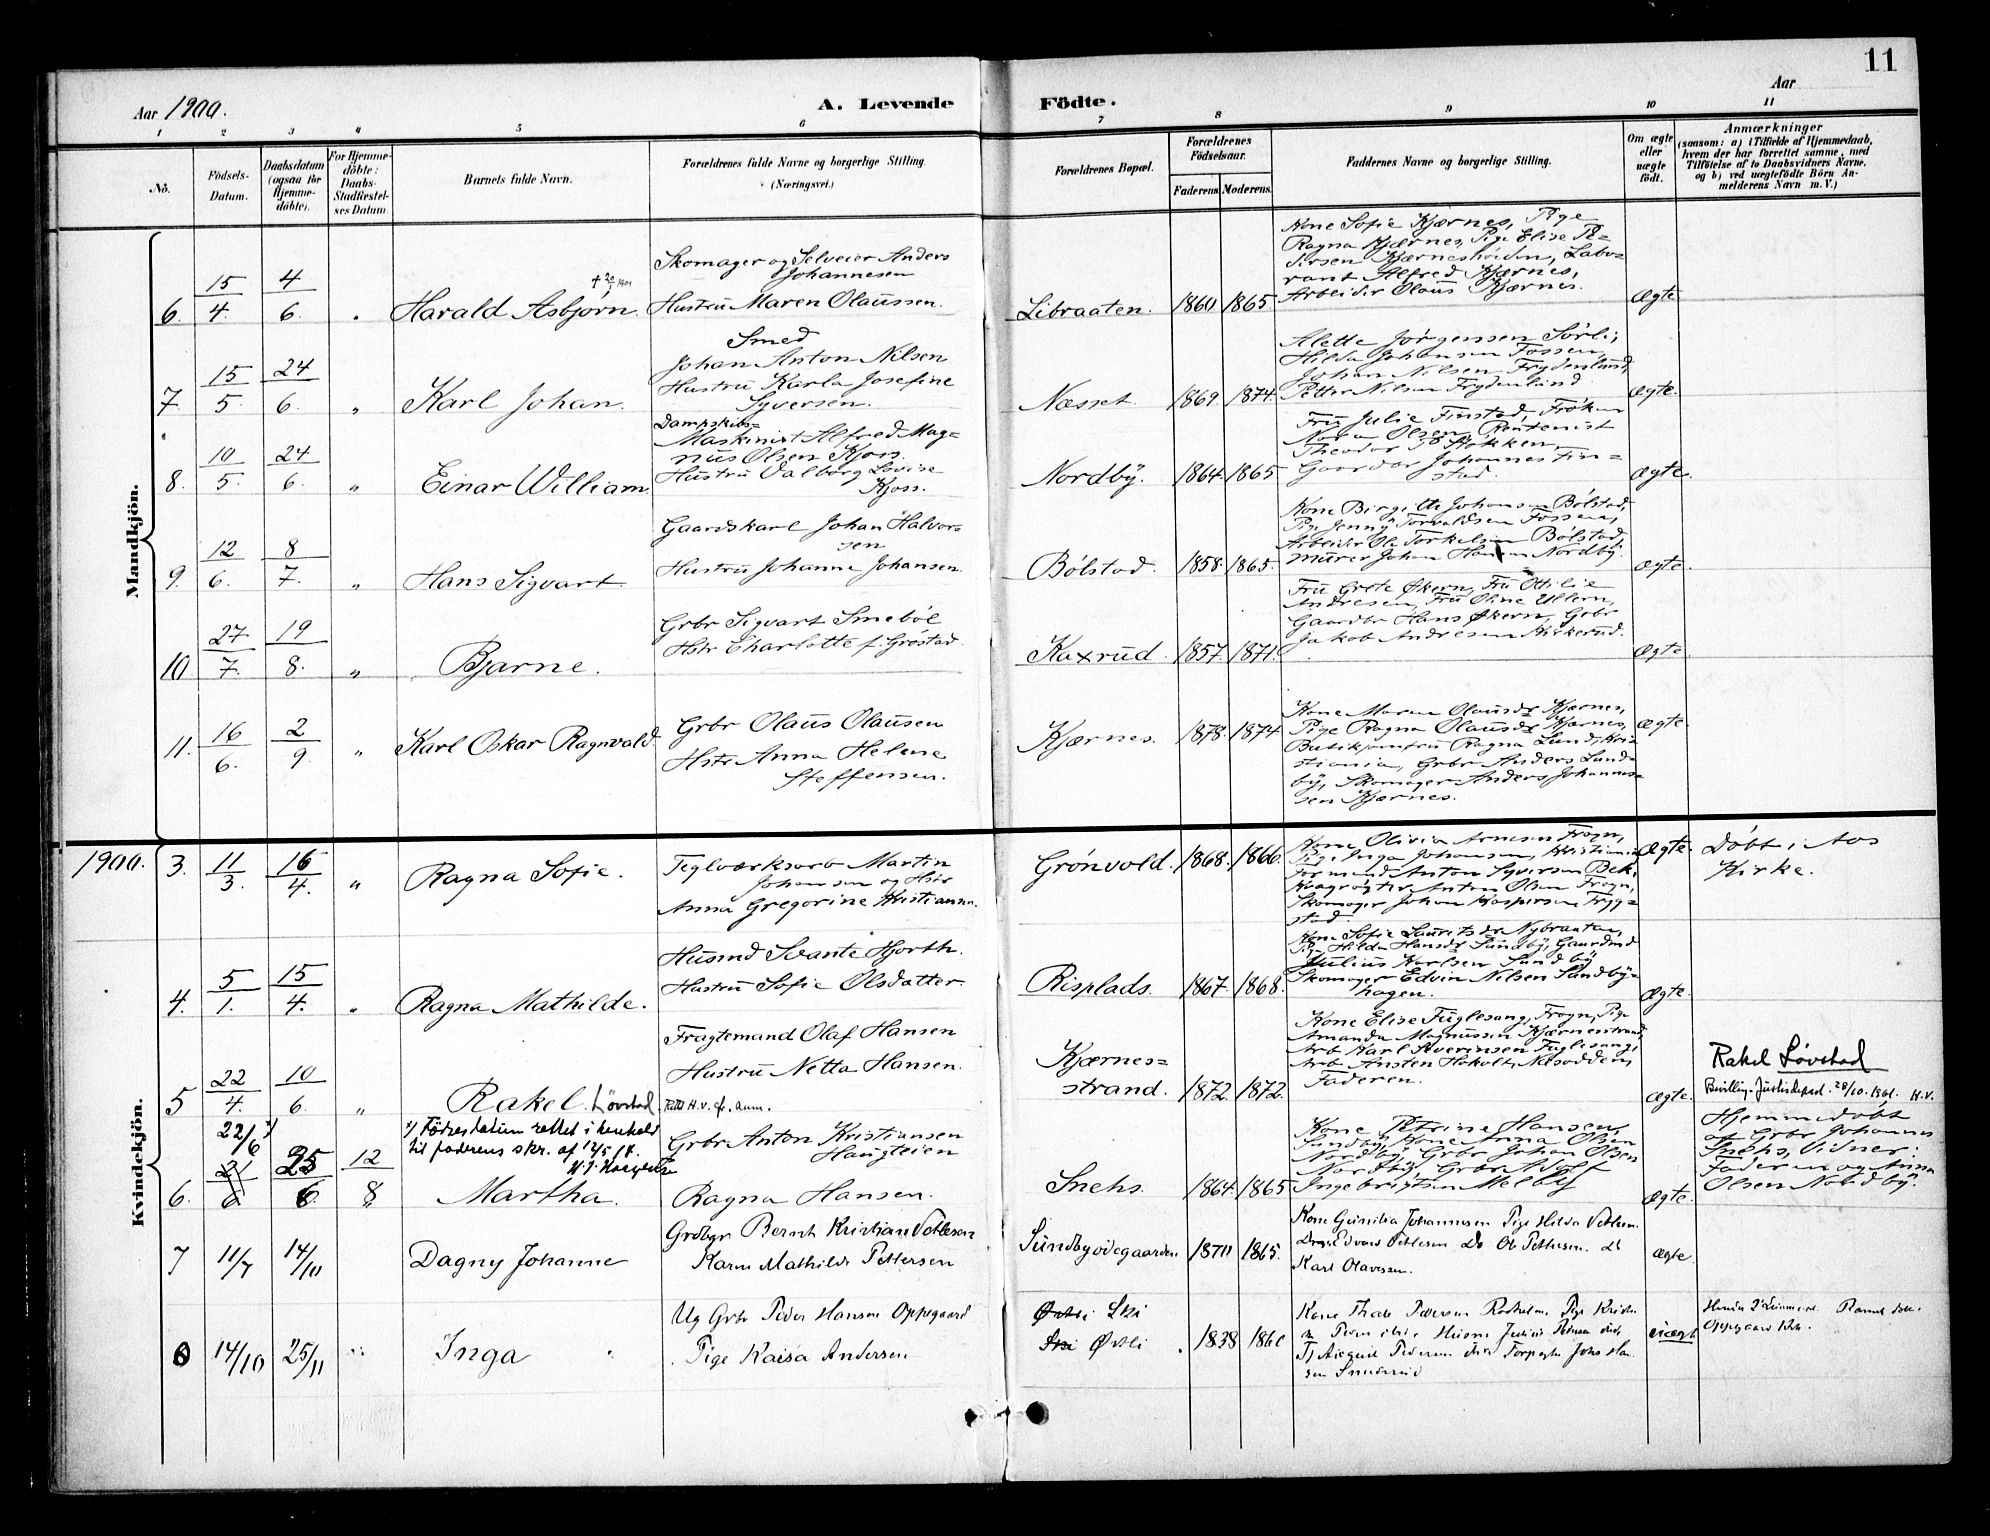 11
Aar 1900.
A. Levende Födte.
Aar
1 2 3 4 5 6 7 8 9 10 11
No.
Födsels-Datum.
Daabsdatum (ogsaa for Hjemme-döbte).
For Hjemme-döbte: Daabs-Stadfæstel-ses Datum.
Barnets fulde Navn.
Forældrenes fulde Navne og borgerlige Stilling. (Næringsvei.)
Forældrenes Bopæl.
Forældrenes Födselsaar.
Faderens. Moderens.
Faddernes Navne og borgerlige Stilling.
Om ægte eller uægte födt.
Anmærkninger
(saasom: a) i Tilfælde af Hjemmedaab, hvem der har forrettet samme, med Tilföielse af to Daabsvidners Navne, og b) ved uægtefödte Börn An-melderens Navn m. V.)
Mandkjön.
6. 15/4. 4/6. Harald Asbjørn.
Skomager og Selveier Anders
Johannesen
Hustru Maren Olaussen.
Libraaten. 1860 1865
Kone Sofie Kjærnes, Pige
Ragna Kjærnes, Pige Elise Pe-
tersen Kjærneshøiden, Labo-
rant Alfred Kjærnes,
Arbeider Olaus Kjærnes.
Ægte
7. 15/5 24/6. " Karl Johan.
Smed
Johan Anton Nilsen
Hustru Karla Josefine
Syversen.
Næsset. 1869 1874.
Alette Jørgensen Sørli,
Hilda Johansen Fossen,
Johan Nilsen Frydenlund,
Petter Nilsen Frydenlund
Ægte.
8. 10/5. 24/6. " Einar William
Dampskibs-
Maskinist Alfred Mag-
nus Olsen Kjoss.
Hustru Valborg Lovise
Kjoss.
Nordby. 1864. 1865
Fru Julie Finstad, Frøken
Nora Olsen, Rentenist
Theodor Stokken,
Gaardbr Johannes Fin-
stad.
Ægte.
9. 12/6. 8/7. " Hans Sigvart
Gaardskarl Johan Halvor-
sen
Hustru Johanne Johansen.
Bölstad. 1858. 1865
Kone Birgitte Johansen Bölstad,
Pige Jenny Torvaldsen Fossen,
Arbeider Ole Torkelsen Bölstad,
Murer Johan Hansen Nordby.
Ægte.
10 27/7. 19/8. " Bjarne.
Grbr Sigvart Smeböl
Hstr Charlotte f. Gröstad.
Kaxrud. 1857. 1871.
Fru Grete Økern, Fru Ottilie
Andresen, Fru Oline Ullern,
Gaardbr Hans Økern, Grbr
Jakob Andresen Kirkerud.
Ægte.
11. 16/6. 2/9. " Karl Oskar Ragnvald.
Grbr Olaus Olausen
Hstr Anna Helene
Steffensen.
Kjærnes. 1878. 1874
Kone Maren Olausdr Kjærnes,
Pige Ragna Olausdr Kjærnes,
Butikjomfru Ragna Lund, Kri-
stiania, Grbr Anders Lund-
by, Skomager Anders Johannes-
sen Kjærnes.
Ægte
Kvindekjön.
1900. 3. 11/3. 16/4. " Ragna Sofie.
Teglværksarb Martin
Johansen og Hstr
Anna Gregorine Kristianna.
Grönvold. 1868. 1866.
Kone Olivia Arnesen Frogn,
Pige Inga Johansen, Kristiania
Formand Anton Syversen Bek,
Anton Olsen Frogn,
Skomager Johan Kaspersen Frygg-
stad.
Ægte. Döbt i Aas
Kirke.
4. 5/1. 15/4. " Ragna Mathilde.
Husmd Svante Hjorth.
Hustru Sofie Olsdatter.
Risplads. 1867. 1868.
Kone Sofie Lauritsdr Nybraaten,
Pige Hilda Hansdr Sundby, Gaardmd
Julius Karlsen Sundby
Skomager Edvin Nilsen Sundby-
hagen.
Ægte.
5 22/4. 10/6. " Rakel. Løvstad.
Fragtemand Olaf Hansen
Hustru Netta Hansen.
Rettet H.V. cfr. anm.
Kjærnes-
strand. 1872. 1872.
Kone Elise Fuglesang, Frogn, Pige
Amanda Magnussen Kjærnesstrand,
Arb Karl Syverinsen Fuglesang,
Arb Ansten Hakolt, Nesodden,
Faderen.
Ægte.
Rakel Løvstad
Bevilling. Justisdepad. 28/10. 1961. H.V.
6. 22/6 1) 21/6 25/6. 12/8 Martha.
1) Födselsdatum rettet i henhold
til faderens skr. af 12/5 17.
Grbr Anton Kristiansen
Haugteien
Ragna Hansen.
Snehs. 1864. 1865
Kone Petrine Hansen,
Sundby, Kone Anna Olsen
Nordby, Grbr Johan Olsen
Nordby, Grbr Adolf
Ingebrigtsen Melby
Ægte.
Hjemmedöbt
af Grbr Johannes
Snehs, Vidner:
Faderen og Anna
Olsen Nordby.
7 11/7 14/10 Dagny Johanne
Grdbgr Bernt Kristian Vetlesen
Karen Mathilde Pettersen
Sundbyødegaarden 1870 1865.
Kone Gunilia Johannesen Pige Hilda Vetlesen.
Edvard Vetlesen Do Ole Pettersen. Do
Karl Olavesen.
ægte
8 14/10 25/11 " Inga
Ug Grbr Peder Hansen Oppegaard
Pige Kaisa Andersen
Østli Ski
Ski Østli 1838 1860
uægte